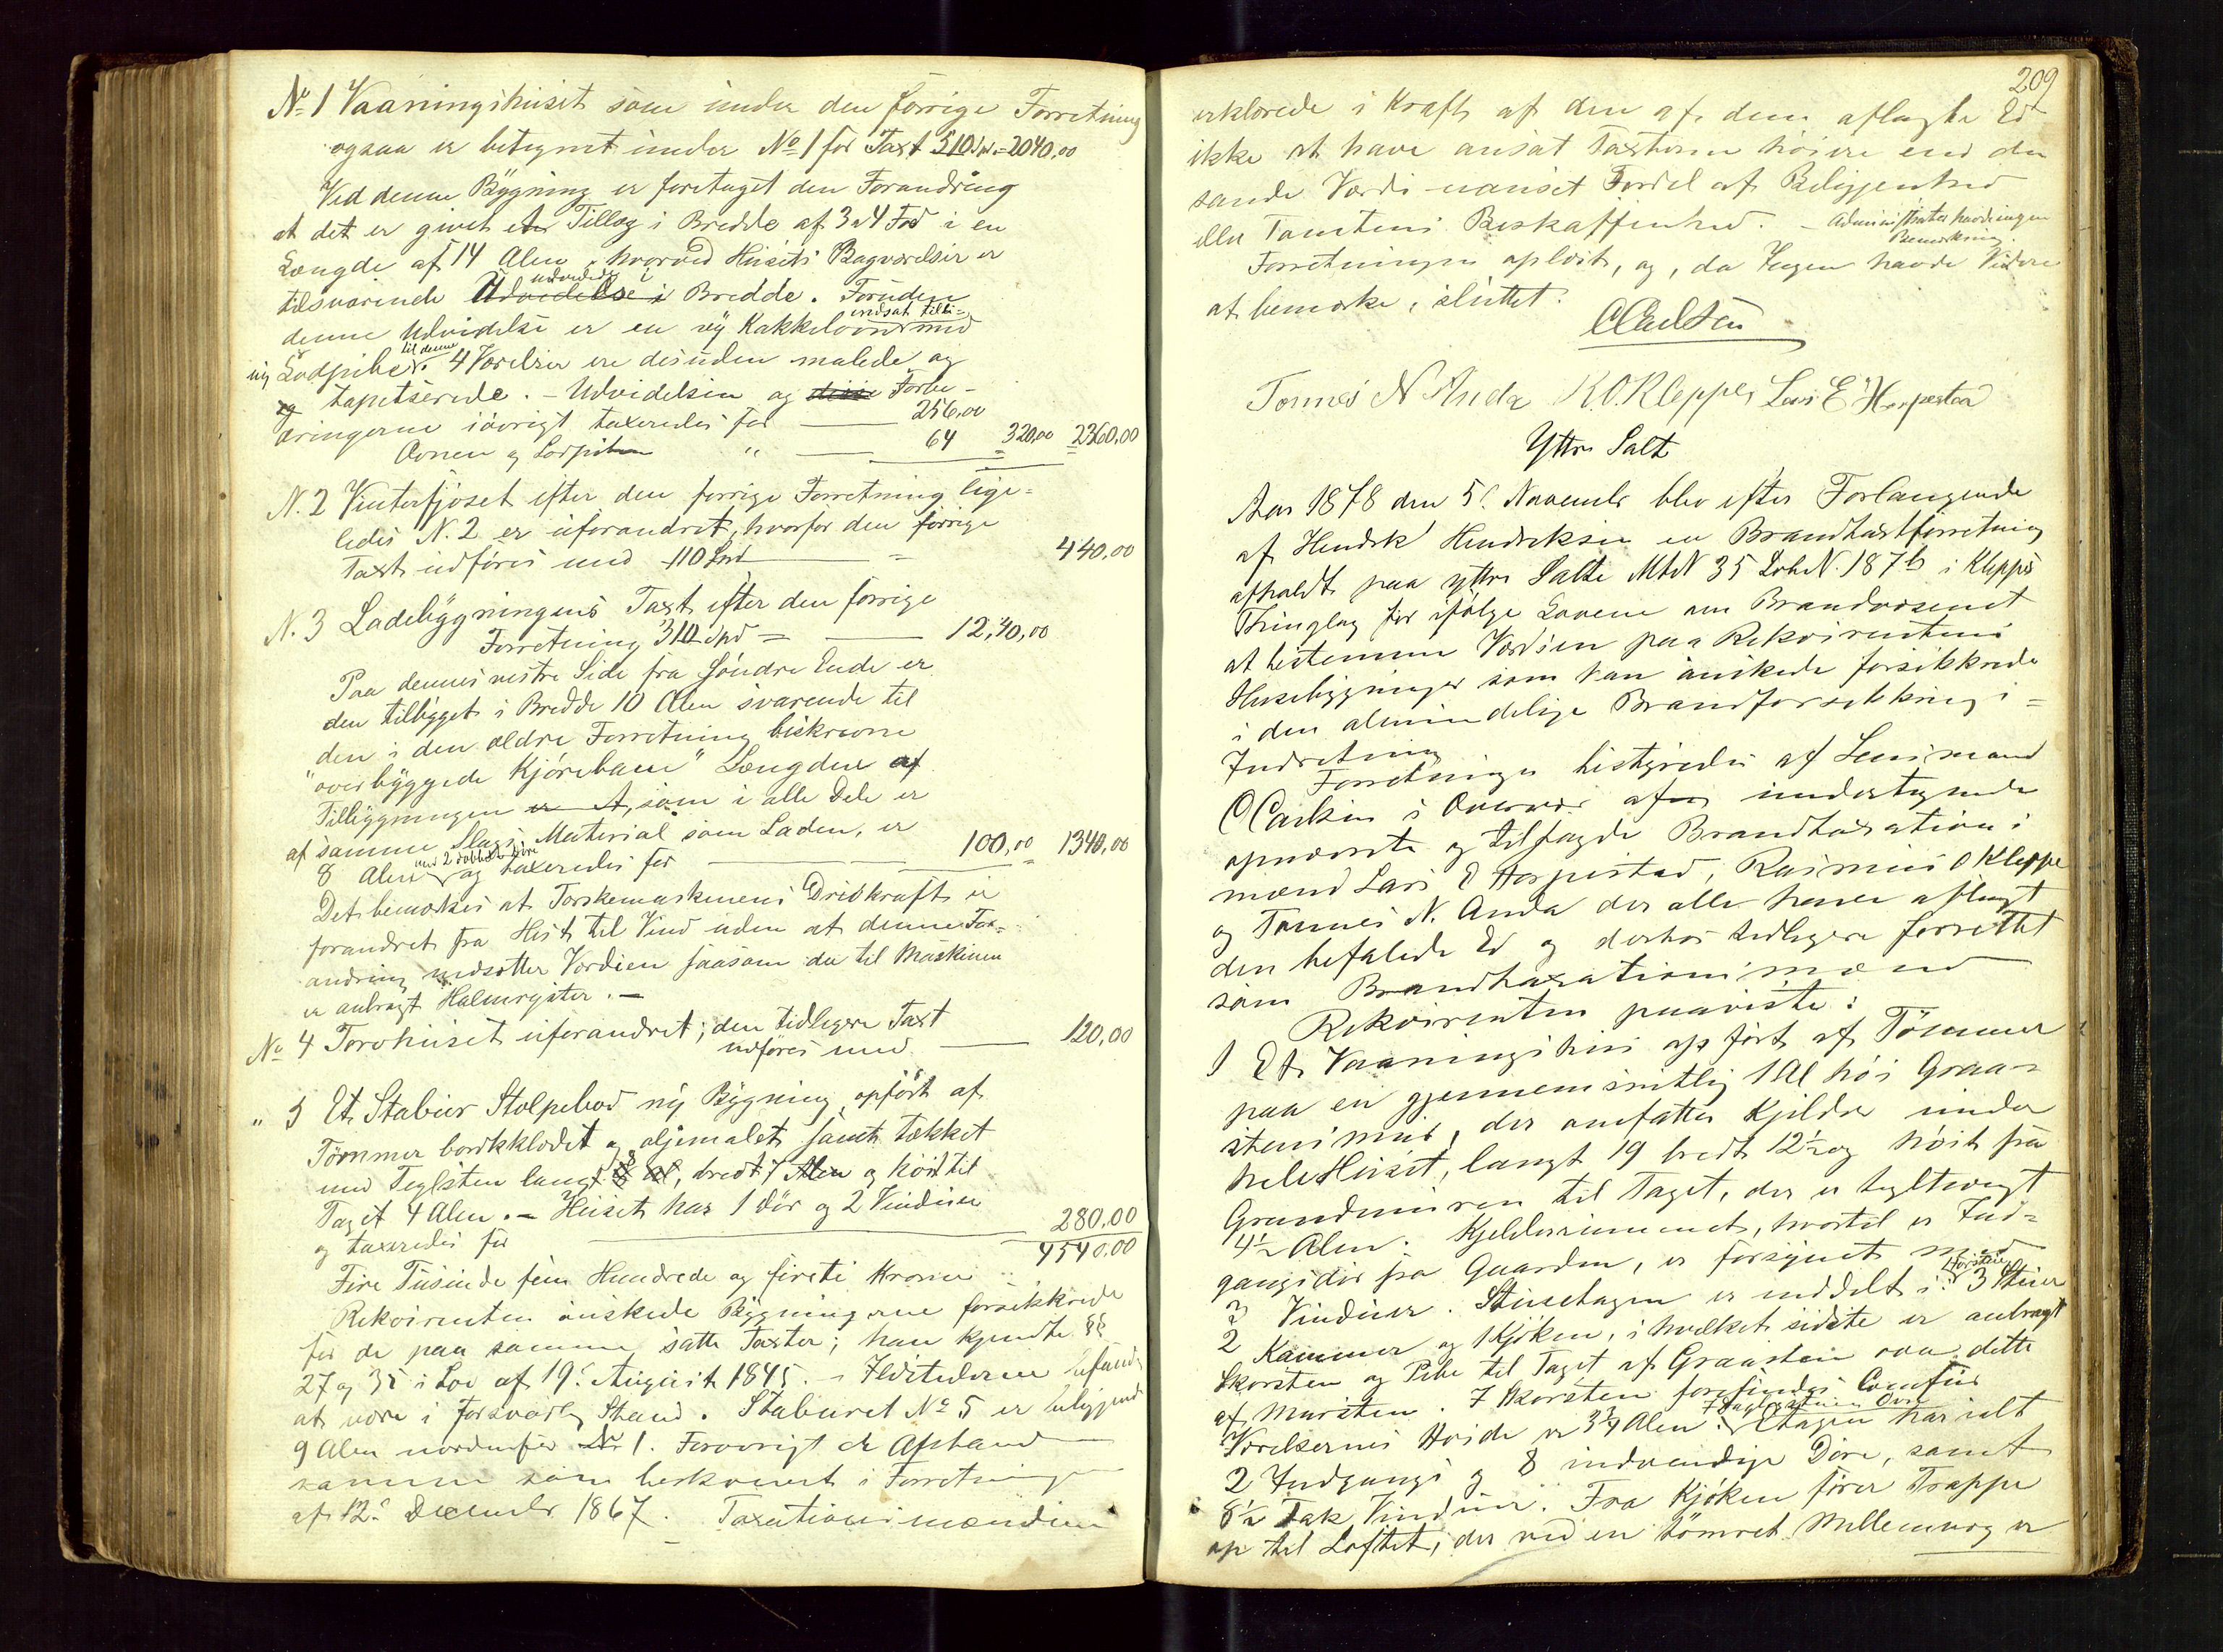 No 1 Vaaningshuset som under den forrige Forretning
ogsaa er betegnet under No 1 for Taxt 510 Spd = 2040,00
Ved denne Bygning er foretaget den Forandring
at det er givet et Tillæg i Bredde af 3 a 4 Fod i en
Længde af 14 Alen, hvorved Husets Bagværelser er
tilsvarende udvidede i Bredde. Foruden
denne Udvidelse er en ny Kakkelovn indsat tilli=med
ny Lodpibe til denne. 4 Værelser ere desuden malede og
og tapetserede. - Udvidelsen og disse Forbe-
dringerne iøvrigt taxeredes for 256,00
Ovnen og Lodpiben " 64 320,00 2360,00
N. 2 Vinterfjøset efter den forrige Forretning lige=
ledes N. 2 er uforandret, hvorfor den forrige
Taxt udføres med 110 Spd = 440,00
N. 3 Ladebygningens Taxt efter den forrige
Forretning 310 Spd = 12,40,00
Paa dennes vestre Side fra søndre Ende er
den tilbygget i Bredde 10 Alen svarende til
den i den ældre Forretning beskrevne
"overbyggede Kjørebane" Længden af
Tilbygningen er A, som i alle Dele er
af samme Slags Material som Laden, er
8 Alen med 2 dobbelt Døre og taxeredes for 100,00 = 1340,00
Det bemærkes at Tærskemaskinens Drivkraft er
forandret fra Hest til Vind uden at denne For=
andring nedsætter Værdien saasom der til Maskinen
er anbragt Halmryster. -
No 4 Torvhuset uforandret; den tidligere Taxt
udføres med 120,00
" 5 Et Stabur Stolpebod ny Bygning, opført af
Tømmer bordklædet og oljemalet samt tækket
med Teglsten langt 8 Al, bredt 7 Alen og høit til
Taget 4 Alen. - Huset har 1 Dør og 2 Vinduer
og taxeredes for 280,00
4540,00
Fire Tusinde fem Hundrede og fireti Kroner
Rekvirenten ønskede Bygningerne forsikkrede
for de paa samme satte Taxter; han kjendte §§
27 og 35 i Lov af 19. August 1845. - Ildstederne befandtes
at være i forsvarlig Stand. Staburet No 5 er beliggende
9 Alen nordenfor No 1. Forøvrigt er Afstand
samme som beskrevet i Forretningen
af 12. December 1867. Taxationsmændene
209
erklærede i Kraft af den af dem aflagte Ed
ikke at have ansat Taxterne høiere end den
sande Værdi uanset Fordel af Beliggenhed
eller Tomtens Beskaffenhed. - Administrator havde ingen
Bemærkning.
Forretningen oplæst, og, da Ingen havde Videre
at bemærke, sluttet.
O Carlsen
Tønnes N Anda R. O. Kleppe, Lars E Horpestad
Yttre Salt
Aar 1878 den 5. November blev efter Forlangende
af Hendrik Hendriksen en Brandtaxtforretning
afholdt paa yttre Salte Mt N 35 Lb N. 187b i Klepps
Thinglag for ifølge Lovene om Brandvæsenet
at bestemme Værdien paa Rekvirentens
Husebygninger som han ønskede forsikkrede
i den almindelige Brandforsikkrings=
Indretning
Forretningen bestyredes af Lensmand
O Carlsen i Overvær af undertegnede
opnævnte og tilsagde Brandtaxations
mænd Lars E Horpestad, Rasmus O Kleppe
og Tønnes N. Anda der alle have aflagt
den befalede Ed og derhos tidligere forrettet
som Brandtaxationsmænd
Rekvirenten paaviste:
1 Et Vaaningshus opført af Tømmer
paa en gjennemsnitlig 1 Al høi Graa-
stensmur, der omfatter Kjelder under
hele Huset, langt 19 bredt 12½ og høit fra
Grundmuren til Taget, der er tegltængt
4½ Alen. Kjelderrummet, hvortil er Ind=
gangsdør fra Gaarden, er forsynet med
3 Vinduer. Stueetagen er inddelt i 1 Forstue 3 Stuer
2 Kammer og 1 Kjøken, i hvilket sidste er anbragt
Skorsten og Pibe til Taget af Graasten over dette
af Mursten. I Skorsten forefindes Comfur
Værelsernes Høide er 3¾ Alen. Etagen har ialt
2 Indgangs og 8 indvendige Døre, samt
8½ Fak Vinduer. Fra Kjøken fører Trappe
op til Loftet, der ved en tømret Mellemvæg er